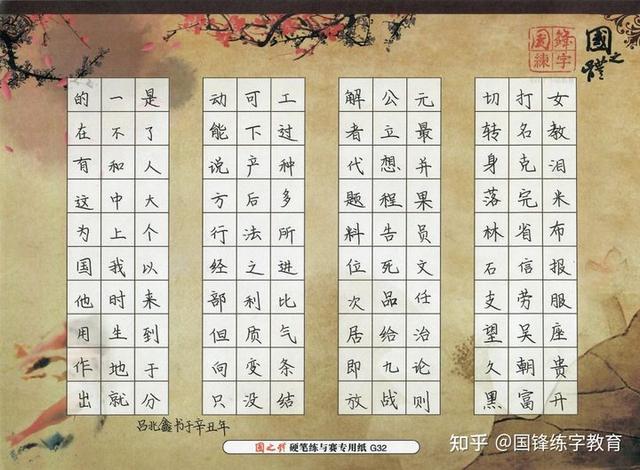 國之禮
国锋练字
的一是
在不了
有和人
这中大
为上个
国我以
他时来
用生到
作地于
出就分
动可工
能下过
说产种
方后多
行法所
经之进
部利比
但质气
向变条
只没结
解公元
者立最
代想并
题程果
料告员
位死文
次品任
居给治
即九论
放战则
切打女
转名教
身克泪
落完米
林省布
石信报
支劳服
望吴座
久朝贵
黑富开
吕兆鑫书于辛丑年
國之禮 硬笔练与赛专用纸 G32
知乎 @国锋练字教育